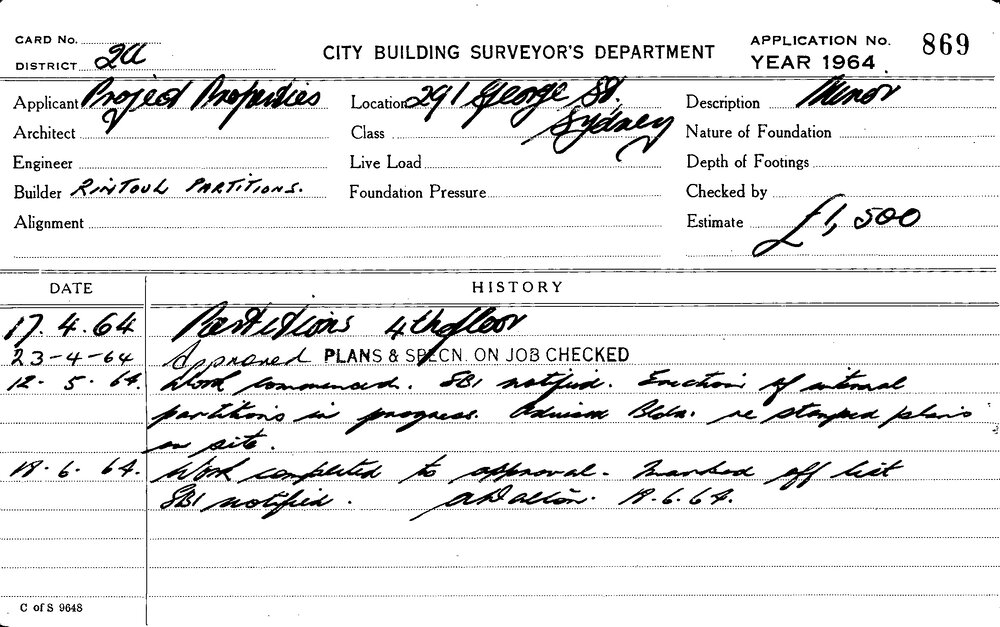 CARD No.
DISTRICT 2A
CITY BUILDING SURVEYOR'S DEPARTMENT
APPLICATION No. 869
YEAR 1964
Applicant Project Properties Location 291 George St. Sydney Description Minor
Architect Class Nature of Foundation
Engineer Live Load Depth of Footings
Builder RINTOUL PARTITIONS. Foundation Pressure Checked by
Alignment Estimate £1,500
DATE HISTORY
17.4.64 Partitions 4th floor
23-4-64 Approved PLANS & SPECN. ON JOB CHECKED
12. 5. 64. Work commenced. SBI notified. Erection of internal
partitions in progress. Advised Bldr. re stamped plans
on site.
19. 6. 64. Work completed to approval. Marked off list
SBI notified. ADalton. 19.6.64.
C of S 9648